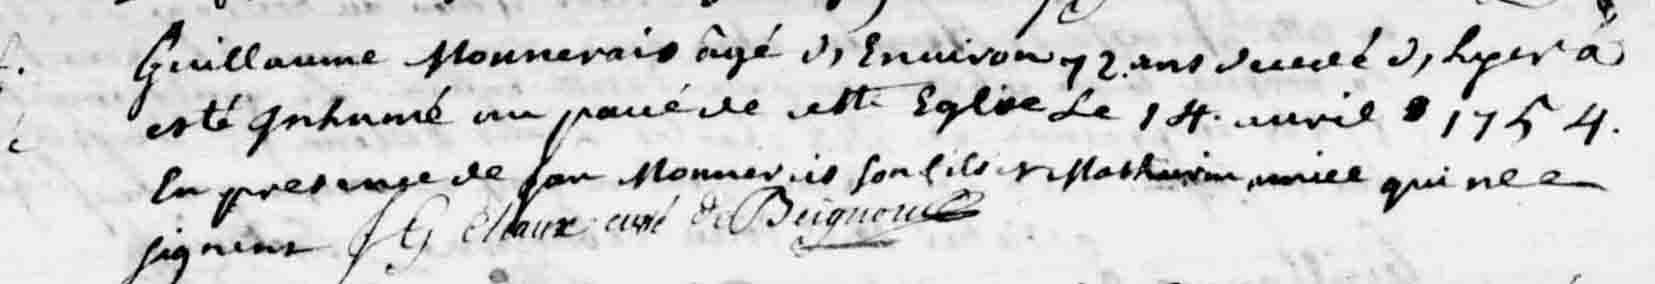 Guillaume Monnerais âgé d'Environ 72. ans decedé d'hyer a
esté Inhumé au pavé de cette Eglise Le 14. avril 1754.
En presence de jan Monnerais son fils et Mathurin qui ne
signent curé de Beignon